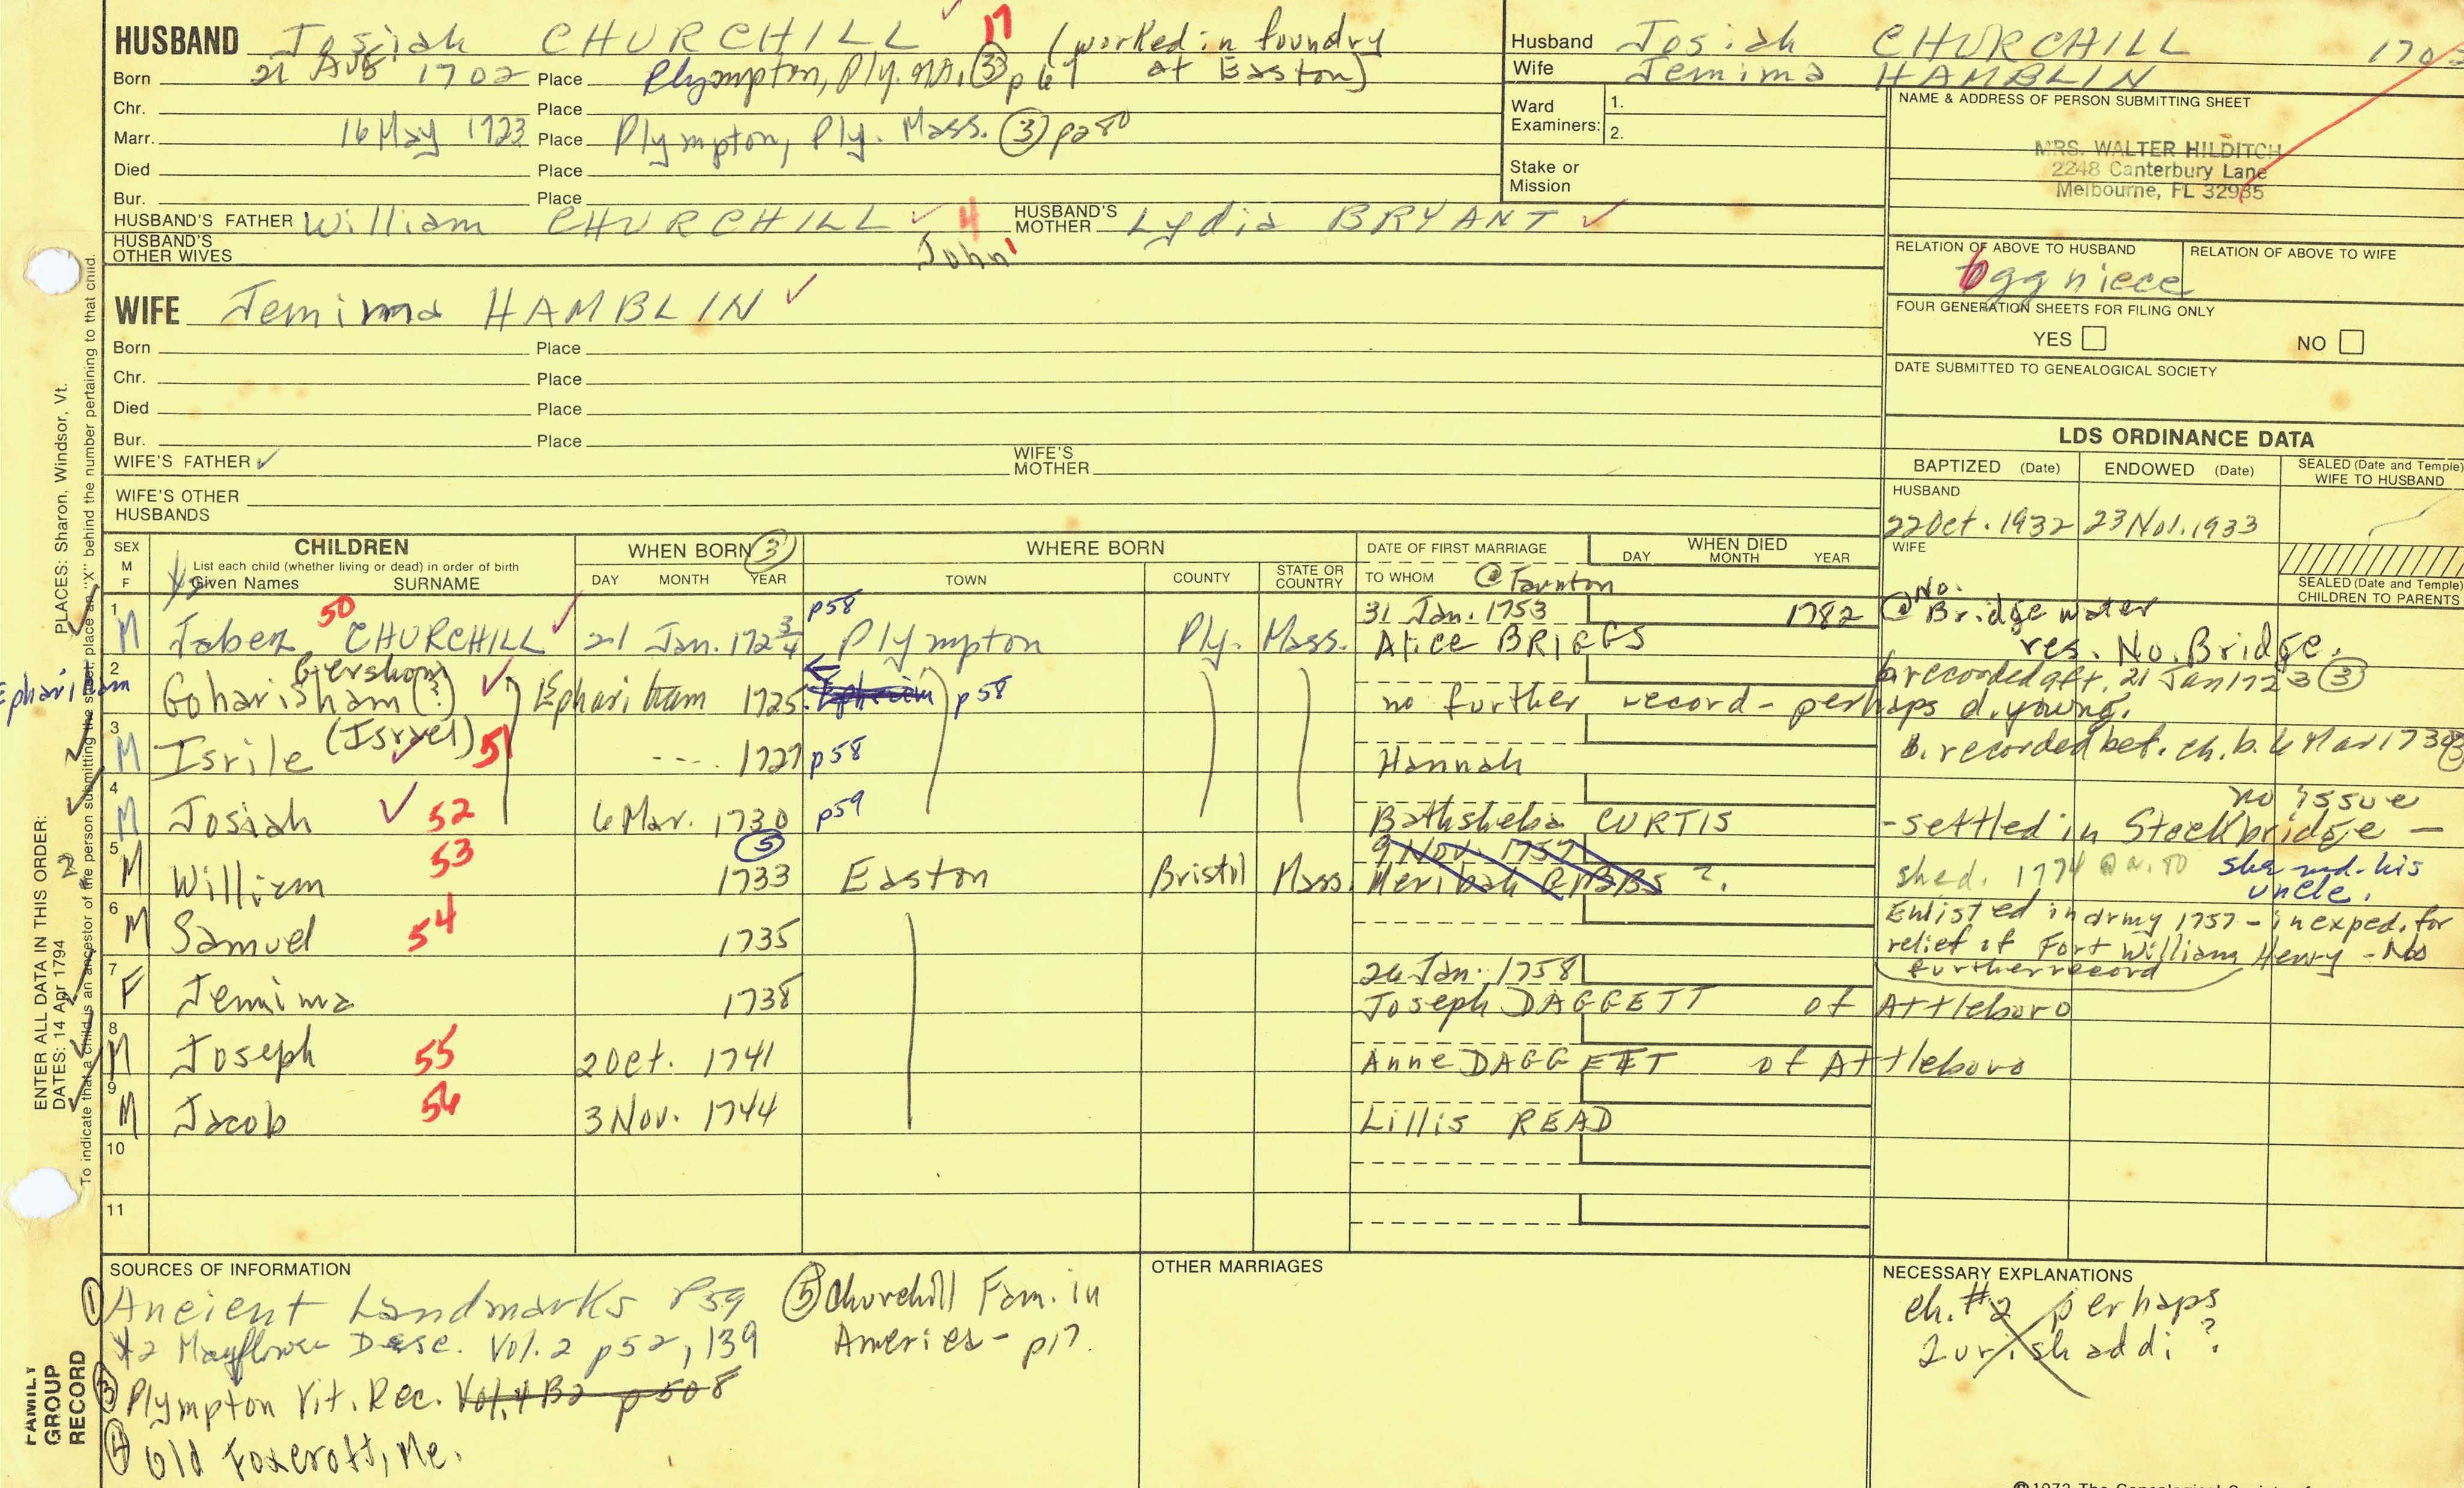 HUSBAND Josiah CHURCHILL 17 (worked in foundry at Easton)
Born 21 Aug 1702 Place Plympton, Ply. Ma. (3) p 67
Chr. Place
Marr. 16 May 1723 Place Plympton, Ply. Mass. (3) p280
Died Place
Bur. Place
HUSBAND'S FATHER William CHURCHILL 4 HUSBAND'S MOTHER Lydia BRYANT
HUSBAND'S OTHER WIVES John 1
WIFE Jemima HAMBLIN
Born Place
Chr. Place
Died Place
Bur. Place
WIFE'S FATHER WIFE'S MOTHER
WIFE'S OTHER HUSBANDS
Husband Josiah CHURCHILL
Wife Jemima HAMBLIN
Ward Examiners: 1. 2.
Stake or Mission
NAME & ADDRESS OF PERSON SUBMITTING SHEET
MRS. WALTER HILDITCH
2248 Canterbury Lane
Melbourne, FL 32935
RELATION OF ABOVE TO HUSBAND RELATION OF ABOVE TO WIFE
6gg niece
FOUR GENERATION SHEETS FOR FILING ONLY
YES NO
DATE SUBMITTED TO GENEALOGICAL SOCIETY
LDS ORDINANCE DATA
BAPTIZED (Date) ENDOWED (Date) SEALED (Date and Temple) WIFE TO HUSBAND
HUSBAND
22 Oct. 1932 23 Nov. 1933
WIFE
SEALED (Date and Temple) CHILDREN TO PARENTS
SEX M F CHILDREN WHEN BORN (3) WHERE BORN DATE OF FIRST MARRIAGE WHEN DIED
List each child (whether living or dead) in order of birth
Given Names SURNAME DAY MONTH YEAR TOWN COUNTY STATE OR COUNTRY TO WHOM DAY MONTH YEAR
@ Taunton
1 M Jabez CHURCHILL 50 21 Jan. 172 3/4 p58 Plympton Ply. Mass. 31 Jan. 1753 Alice BRIGGS 1782 @ No. Bridgewater
res. No. Bridge.
2 Gershom
Goharisham (?) Epharitham 1725 p58 no further record - perhaps d. young.
b recorded aft. 21 Jan 1723 (3)
3 M Isrile (Israel) 51 ---- 1727 p58 Hannah
b. recorded bet. ch. b. 6 Mar 1730 (3)
4 M Josiah 52 6 Mar. 1730 p59 Bathsheba CURTIS - settled in Stockbridge - no issue
5 M William 53 (5) 1733 Easton Bristol Mass. 9 Nov. 1757 Meribah GIBBS ?.
she d. 1774 she md. his uncle.
6 M Samuel 54 1735
Enlisted in army 1757 - in exped. for relief of Fort William Henry - No further record
7 F Jemima 1738 26 Jan. 1758 Joseph DAGGETT of Attleboro
8 M Joseph 55 2 Oct. 1741 Anne DAGGETT of Attleboro
9 M Jacob 56 3 Nov. 1744 Lillis READ
10
11
SOURCES OF INFORMATION
(1) Ancient Landmarks P59
#2 Mayflower Desc. Vol. 2 p52, 139
(3) Plympton Vit. Rec. Vol. 4 B2 p 508
(4) Old Foxcroft, Me.
(5) Churchill Fam. in America - p17.
OTHER MARRIAGES
NECESSARY EXPLANATIONS
ch. #2 perhaps
Zurishaddi ?
PLACES: Sharon, Windsor, Vt.
ENTER ALL DATA IN THIS ORDER:
DATES: 14 Apr 1794
To indicate that a child is an ancestor of the person submitting the sheet, place an "X" behind the number pertaining to that child.
FAMILY
GROUP
RECORD